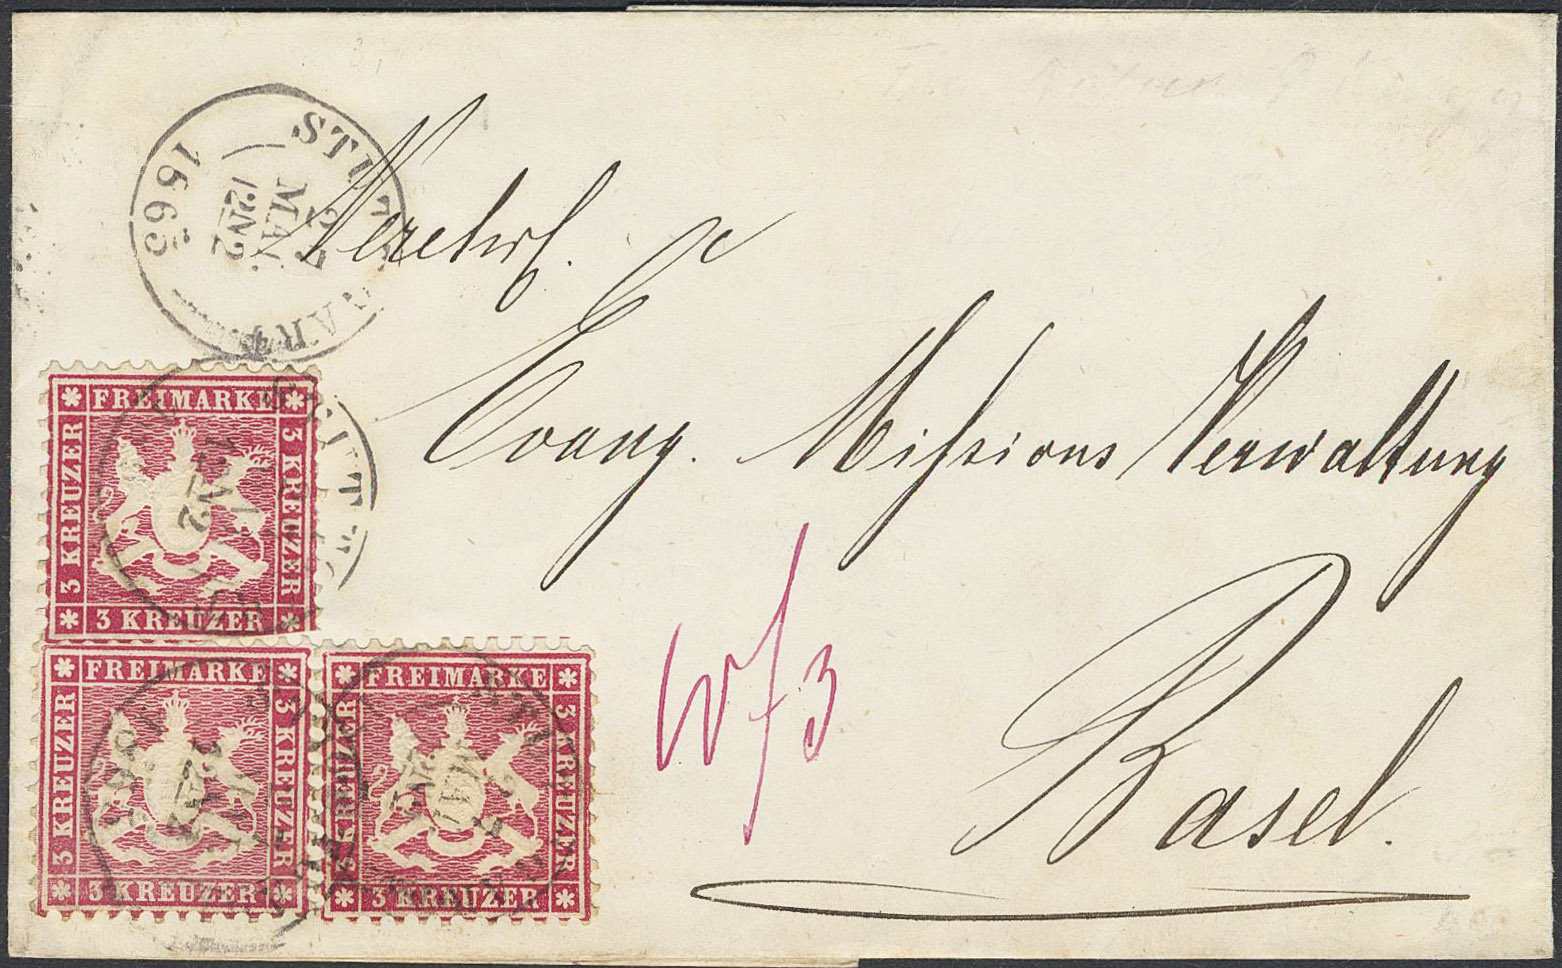 STUTTGART
27
MAI
12N2
1865
Verehrl.
Evang. Missions Verwaltung
Basel.
wf 3
FREIMARKE
3 KREUZER
3 KREUZER
3 KREUZER
FREIMARKE
3 KREUZER
3 KREUZER
3 KREUZER
FREIMARKE
3 KREUZER
3 KREUZER
3 KREUZER